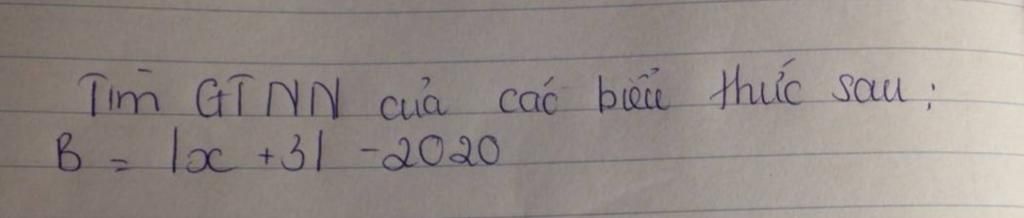 Tìm GTNN của các biểu thức sau:
B = |x + 3| - 2020